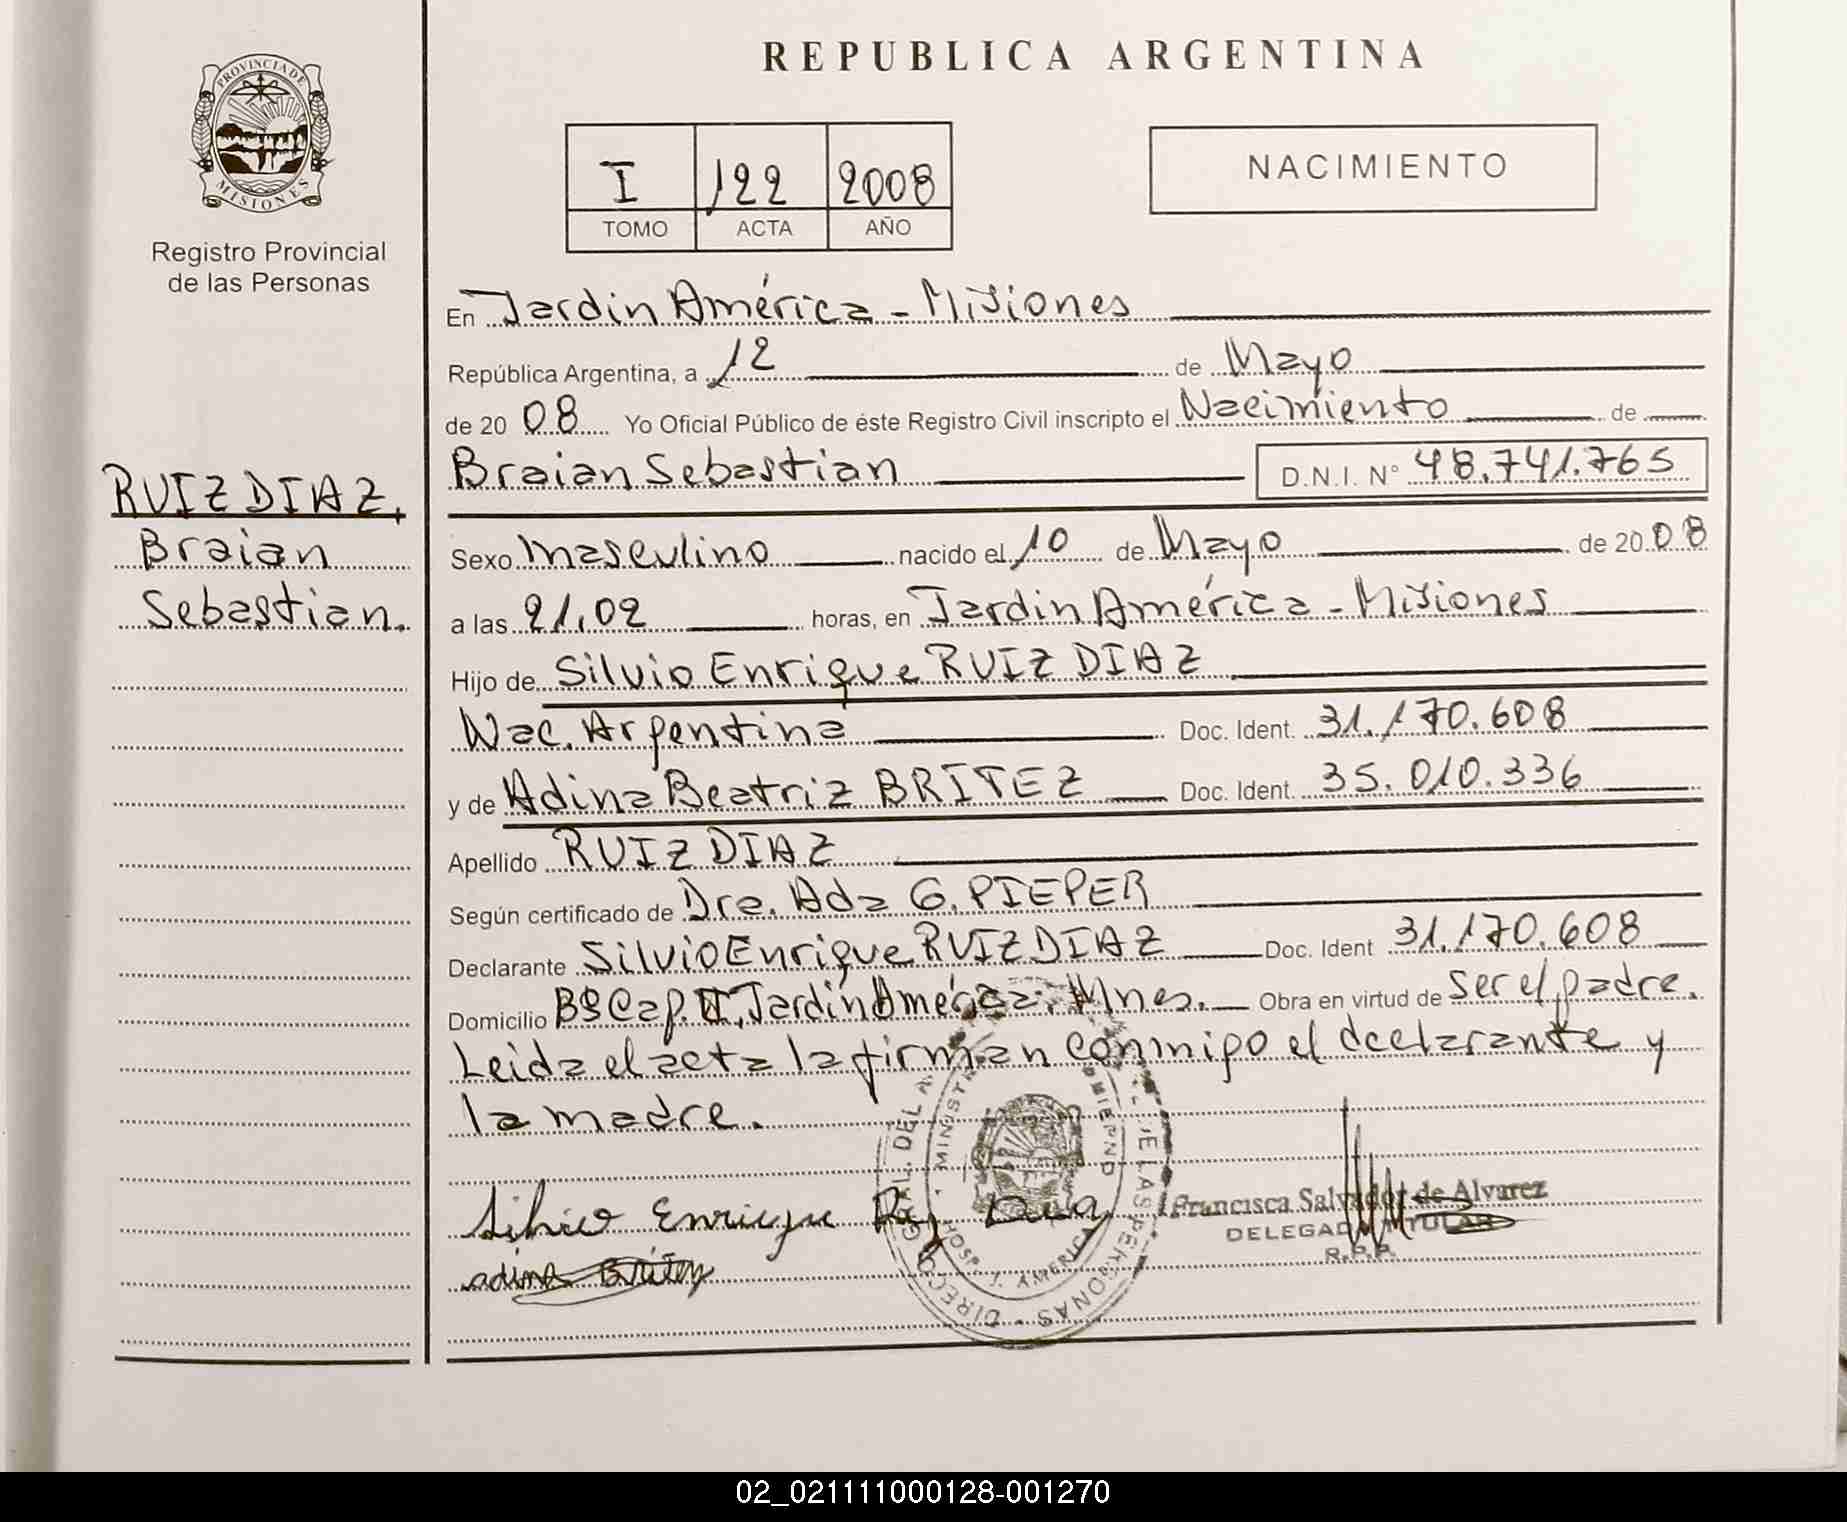 REPUBLICA ARGENTINA
PROVINCIA DE
MISIONES
Registro Provincial
de las Personas
I 122 2008
TOMO ACTA AÑO
NACIMIENTO
RUIZ DIAZ,
Braian
Sebastian.
En Jardin América - Misiones
República Argentina, a 12 de Mayo
de 20 08 Yo Oficial Público de éste Registro Civil inscripto el Nacimiento de
Braian Sebastian D.N.I. N° 48.741.765
Sexo masculino nacido el 10 de Mayo de 20 08
a las 21,02 horas, en Jardin América - Misiones
Hijo de Silvio Enrique RUIZ DIAZ
Nac. Argentina Doc. Ident. 31.170.608
y de Adina Beatriz BRITEZ Doc. Ident. 35.010.336
Apellido RUIZ DIAZ
Según certificado de Dra. Ada G. PIEPER
Declarante Silvio Enrique RUIZ DIAZ Doc. Ident 31.170.608
Domicilio Bº Cap. Jardín América. Mnes. Obra en virtud de ser el padre.
Leida el acta la firman conmigo el declarante y
la madre.
Silvio Enrique Ruiz Diaz
adina Britez
Francisca Salvador de Alvarez
DELEGADA TITULAR
R.P.P.
HOSP. J. AMERICA
02_021111000128-001270